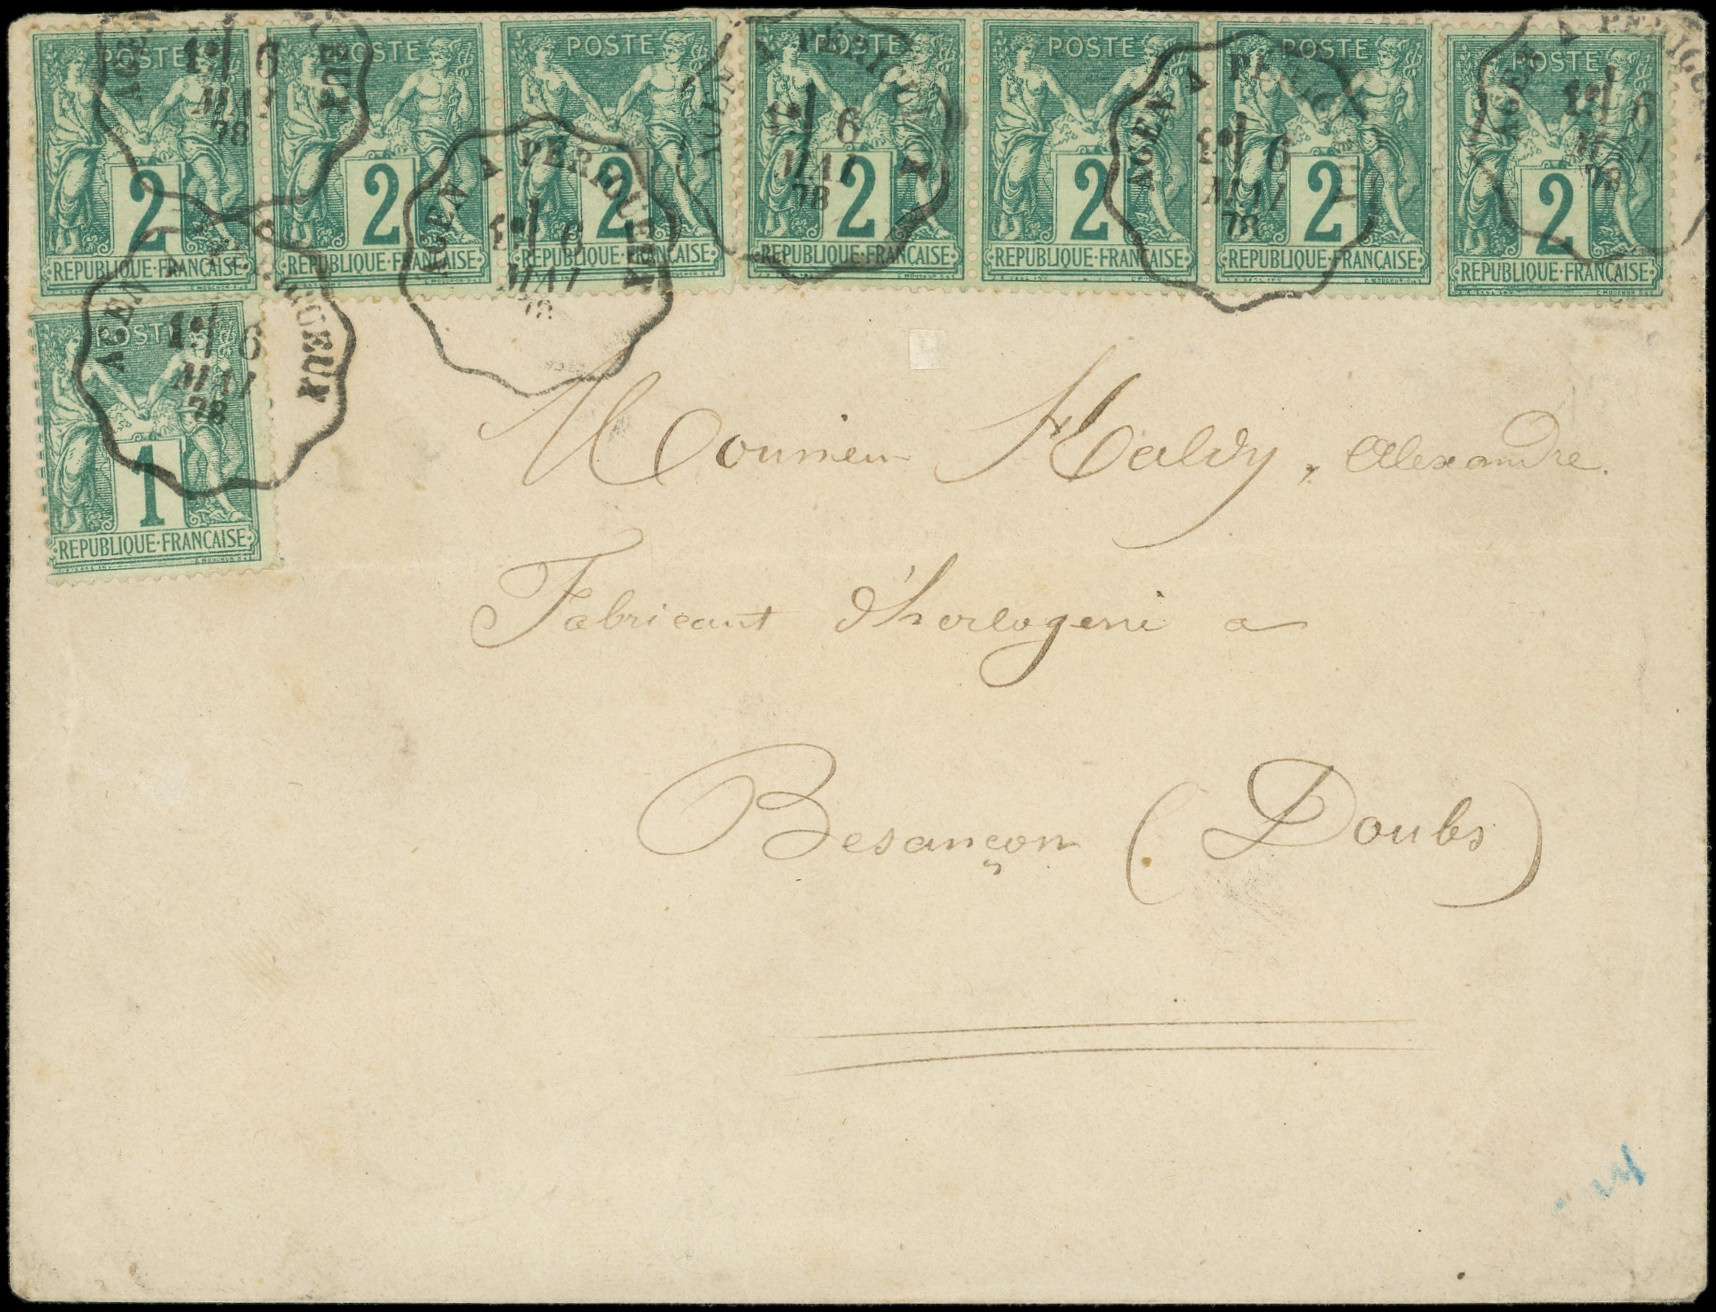 POSTE POSTE POSTE POSTE POSTE POSTE POSTE
2 2 2 2 2 2 2
REPUBLIQUE·FRANÇAISE REPUBLIQUE·FRANÇAISE REPUBLIQUE·FRANÇAISE REPUBLIQUE·FRANÇAISE REPUBLIQUE·FRANÇAISE REPUBLIQUE·FRANÇAISE REPUBLIQUE·FRANÇAISE
AGEN A PERIGUEUX
1º 6
MAI
78
AGEN A PERIGUEUX
1º 6
MAI
78
AGEN A PERIGUEUX
1º 6
MAI
78
AGEN A PERIGU
1º 6
MAI
78
AGEN A PERIGU
1º 6
MAI
78
POSTE
1
REPUBLIQUE·FRANÇAISE
AGEN GUEUX
1º 6
MAI
78
Monsieur Haldy, Alexandre.
Fabricant d'horlogerie a
Besançon (Doubs)